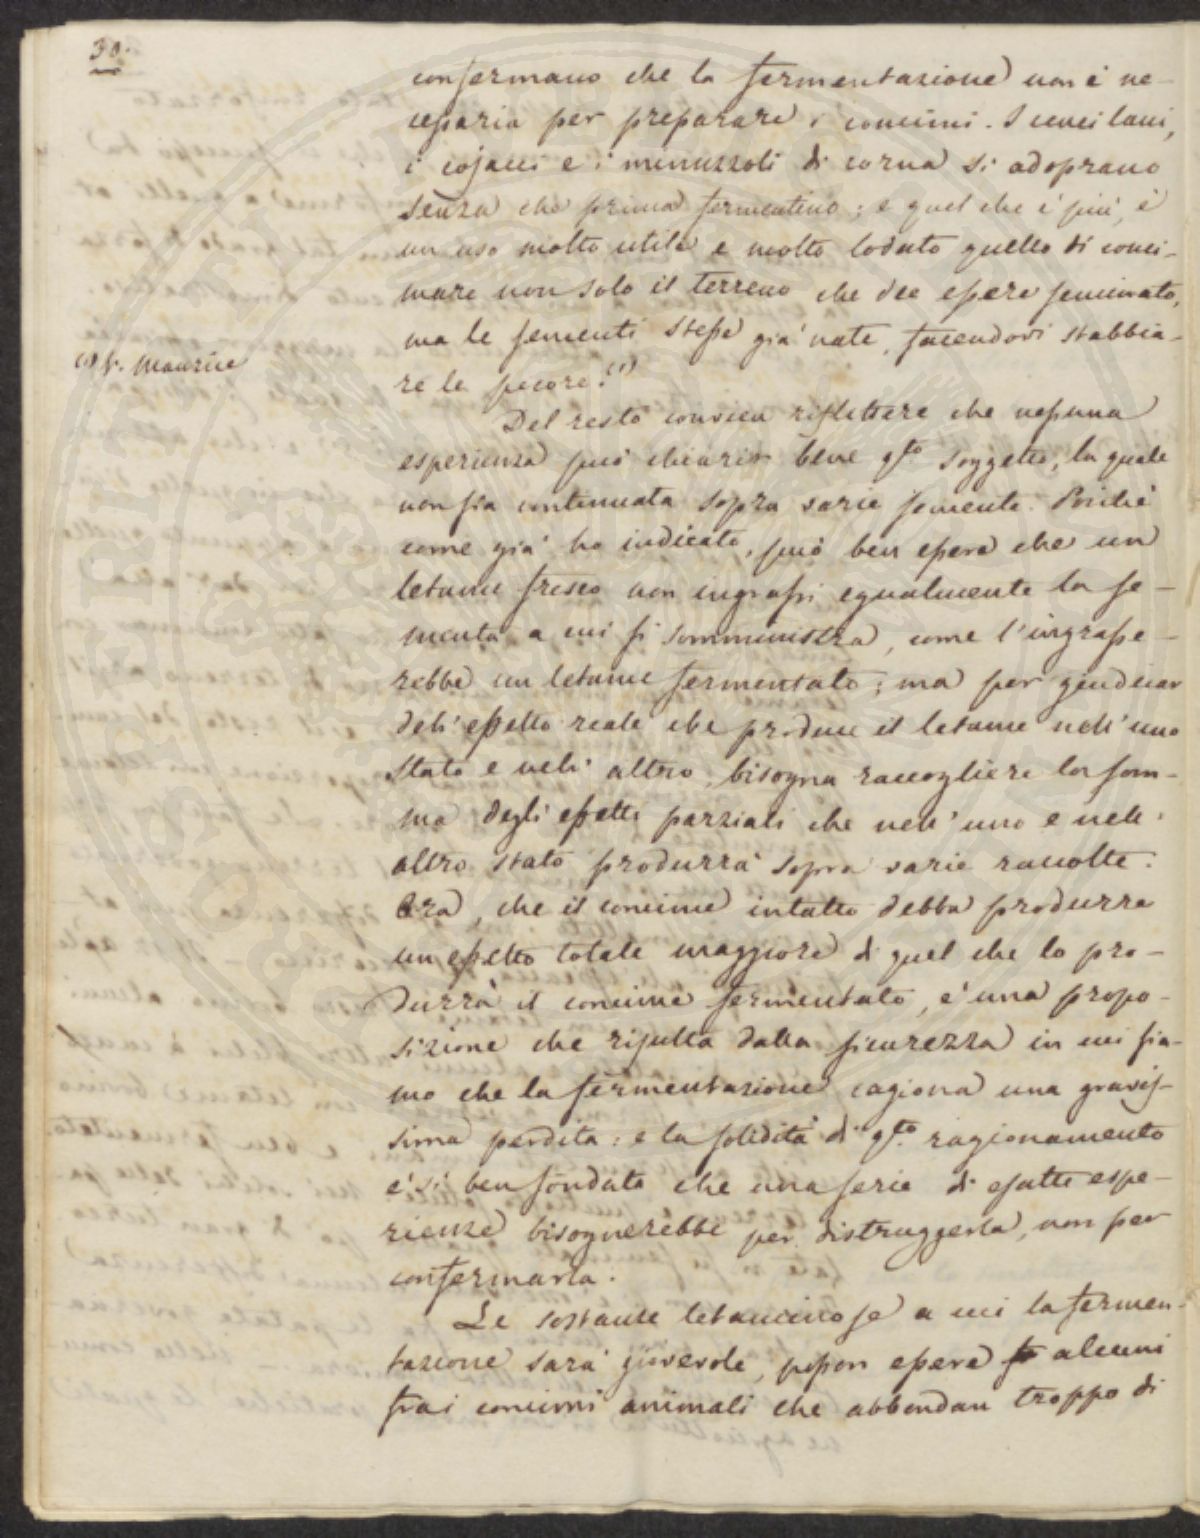 30.
confermano che la fermentazione non è ne-
cessaria per preparare i concimi. I cenci lani,
i cojacci e i minuzzoli di corna si adoprano
senza che prima fermentino; e quel che è più, è
un uso molto utile e molto lodato quello di conci-
mare non solo il terreno che dee essere seminato,
ma le sementi stesse già nate, facendovi stabbia-
re le pecore.(1)
(1) V. Maurice
Del resto convien riflettere che nessuna
esperienza può chiarir bene q.to soggetto, la quale
non sia continuata sopra varie semente. Poichè
come già ho indicato, può ben essere che un
letame fresco non ingrassi egualmente la se-
menta a cui si somministra, come l'ingrasse-
rebbe un letame fermentato; ma per giudicar
dell'effetto reale che produce il letame nell'uno
stato e nell'altro, bisogna raccogliere la som-
ma degli effetti parziali che nell'uno e nell'
altro stato produrrà sopra varie raccolte.
Ora, che il concime intatto debba produrre
un effetto totale maggiore di quel che lo pro-
durrà il concime fermentato, è una propo-
sizione che risulta dalla sicurezza in cui sia-
mo che la fermentazione cagiona una gravis-
sima perdita: e la solidità di q.to ragionamento
è sì ben fondata che una serie di esatte espe-
rienze bisognerebbe per distruggerla, non per
confermarla.
Le sostanze letaminose a cui la fermen-
tazione sarà giovevole, posson essere alcuni
fra i concimi animali che abbondan troppo di